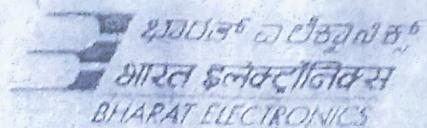 ಭಾರತ್ ಎಲೆಕ್ಟ್ರಾನಿಕ್ಸ್
भारत इलेक्ट्रॉनिक्स
BHARAT ELECTRONICS